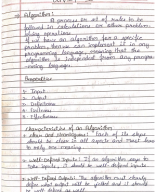 Algorithm :
A process or set of rules to be
followed in calculations or other problem-
solving operations
If we have an algorithm for a specific
problem, then we can implement it in any
programming language, meaning that the
algorithm is independent from any program-
ming language.
Properties
Input
Output
Definiteness
Finiteness
Effectiveness
Characteristics of an Algorithm
clear and Unambiguous : Each of its steps
should be clear in all aspects and must lead
to only one meaning
well-defined Inputs : If an algorithm says to
take inputs, it should be well-defined inputs
well-defined Outputs : The algorithm must clearly
define what output will be yielded and it should
be well defined as well